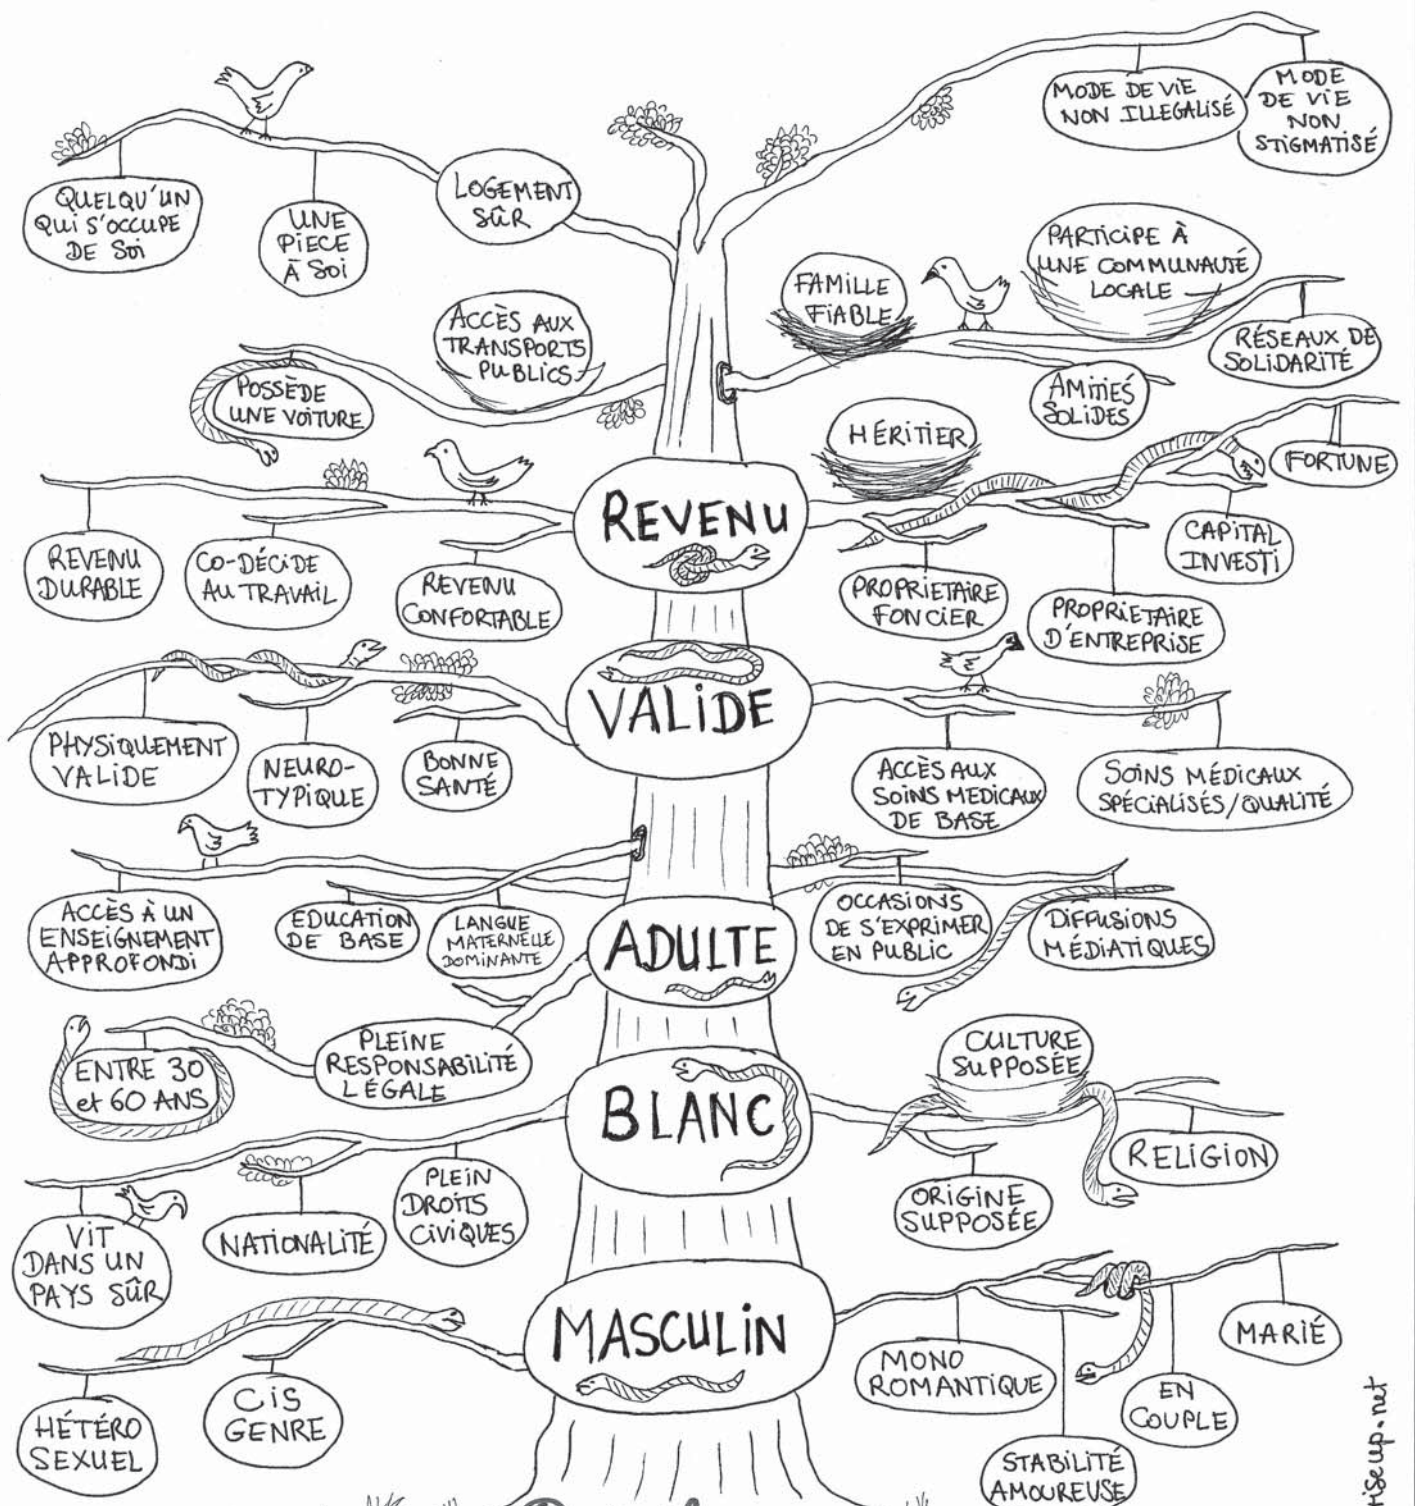 MODE DE VIE
NON ILLEGALISÉ
MODE
DE VIE
NON
STIGMATISÉ
QUELQU'UN
QUI S'OCCUPE
DE SOI
UNE
PIECE
À SOI
LOGEMENT
SÛR
FAMILLE
FIABLE
PARTICIPE À
UNE COMMUNAUTÉ
LOCALE
RÉSEAUX DE
SOLIDARITÉ
AMITIÉS
SOLIDES
ACCÈS AUX
TRANSPORTS
PUBLICS
POSSÈDE
UNE VOITURE
HÉRITIER
FORTUNE
CAPITAL
INVESTI
REVENU
REVENU
DURABLE
CO-DÉCIDE
AU TRAVAIL
REVENU
CONFORTABLE
PROPRIETAIRE
FONCIER
PROPRIETAIRE
D'ENTREPRISE
VALIDE
PHYSIQUEMENT
VALIDE
NEURO-
TYPIQUE
BONNE
SANTÉ
ACCÈS AUX
SOINS MEDICAUX
DE BASE
SOINS MÉDICAUX
SPÉCIALISÉS/QUALITÉ
ACCÈS À UN
ENSEIGNEMENT
APPROFONDI
EDUCATION
DE BASE
LANGUE
MATERNELLE
DOMINANTE
ADULTE
OCCASIONS
DE S'EXPRIMER
EN PUBLIC
DIFFUSIONS
MÉDIATIQUES
ENTRE 30
et 60 ANS
PLEINE
RESPONSABILITÉ
LÉGALE
BLANC
CULTURE
SUPPOSÉE
RELIGION
ORIGINE
SUPPOSÉE
VIT
DANS UN
PAYS SÛR
NATIONALITÉ
PLEIN
DROITS
CIVIQUES
MASCULIN
HÉTÉRO
SEXUEL
CIS
GENRE
MONO
ROMANTIQUE
STABILITÉ
AMOUREUSE
EN
COUPLE
MARIÉ
riseup.net